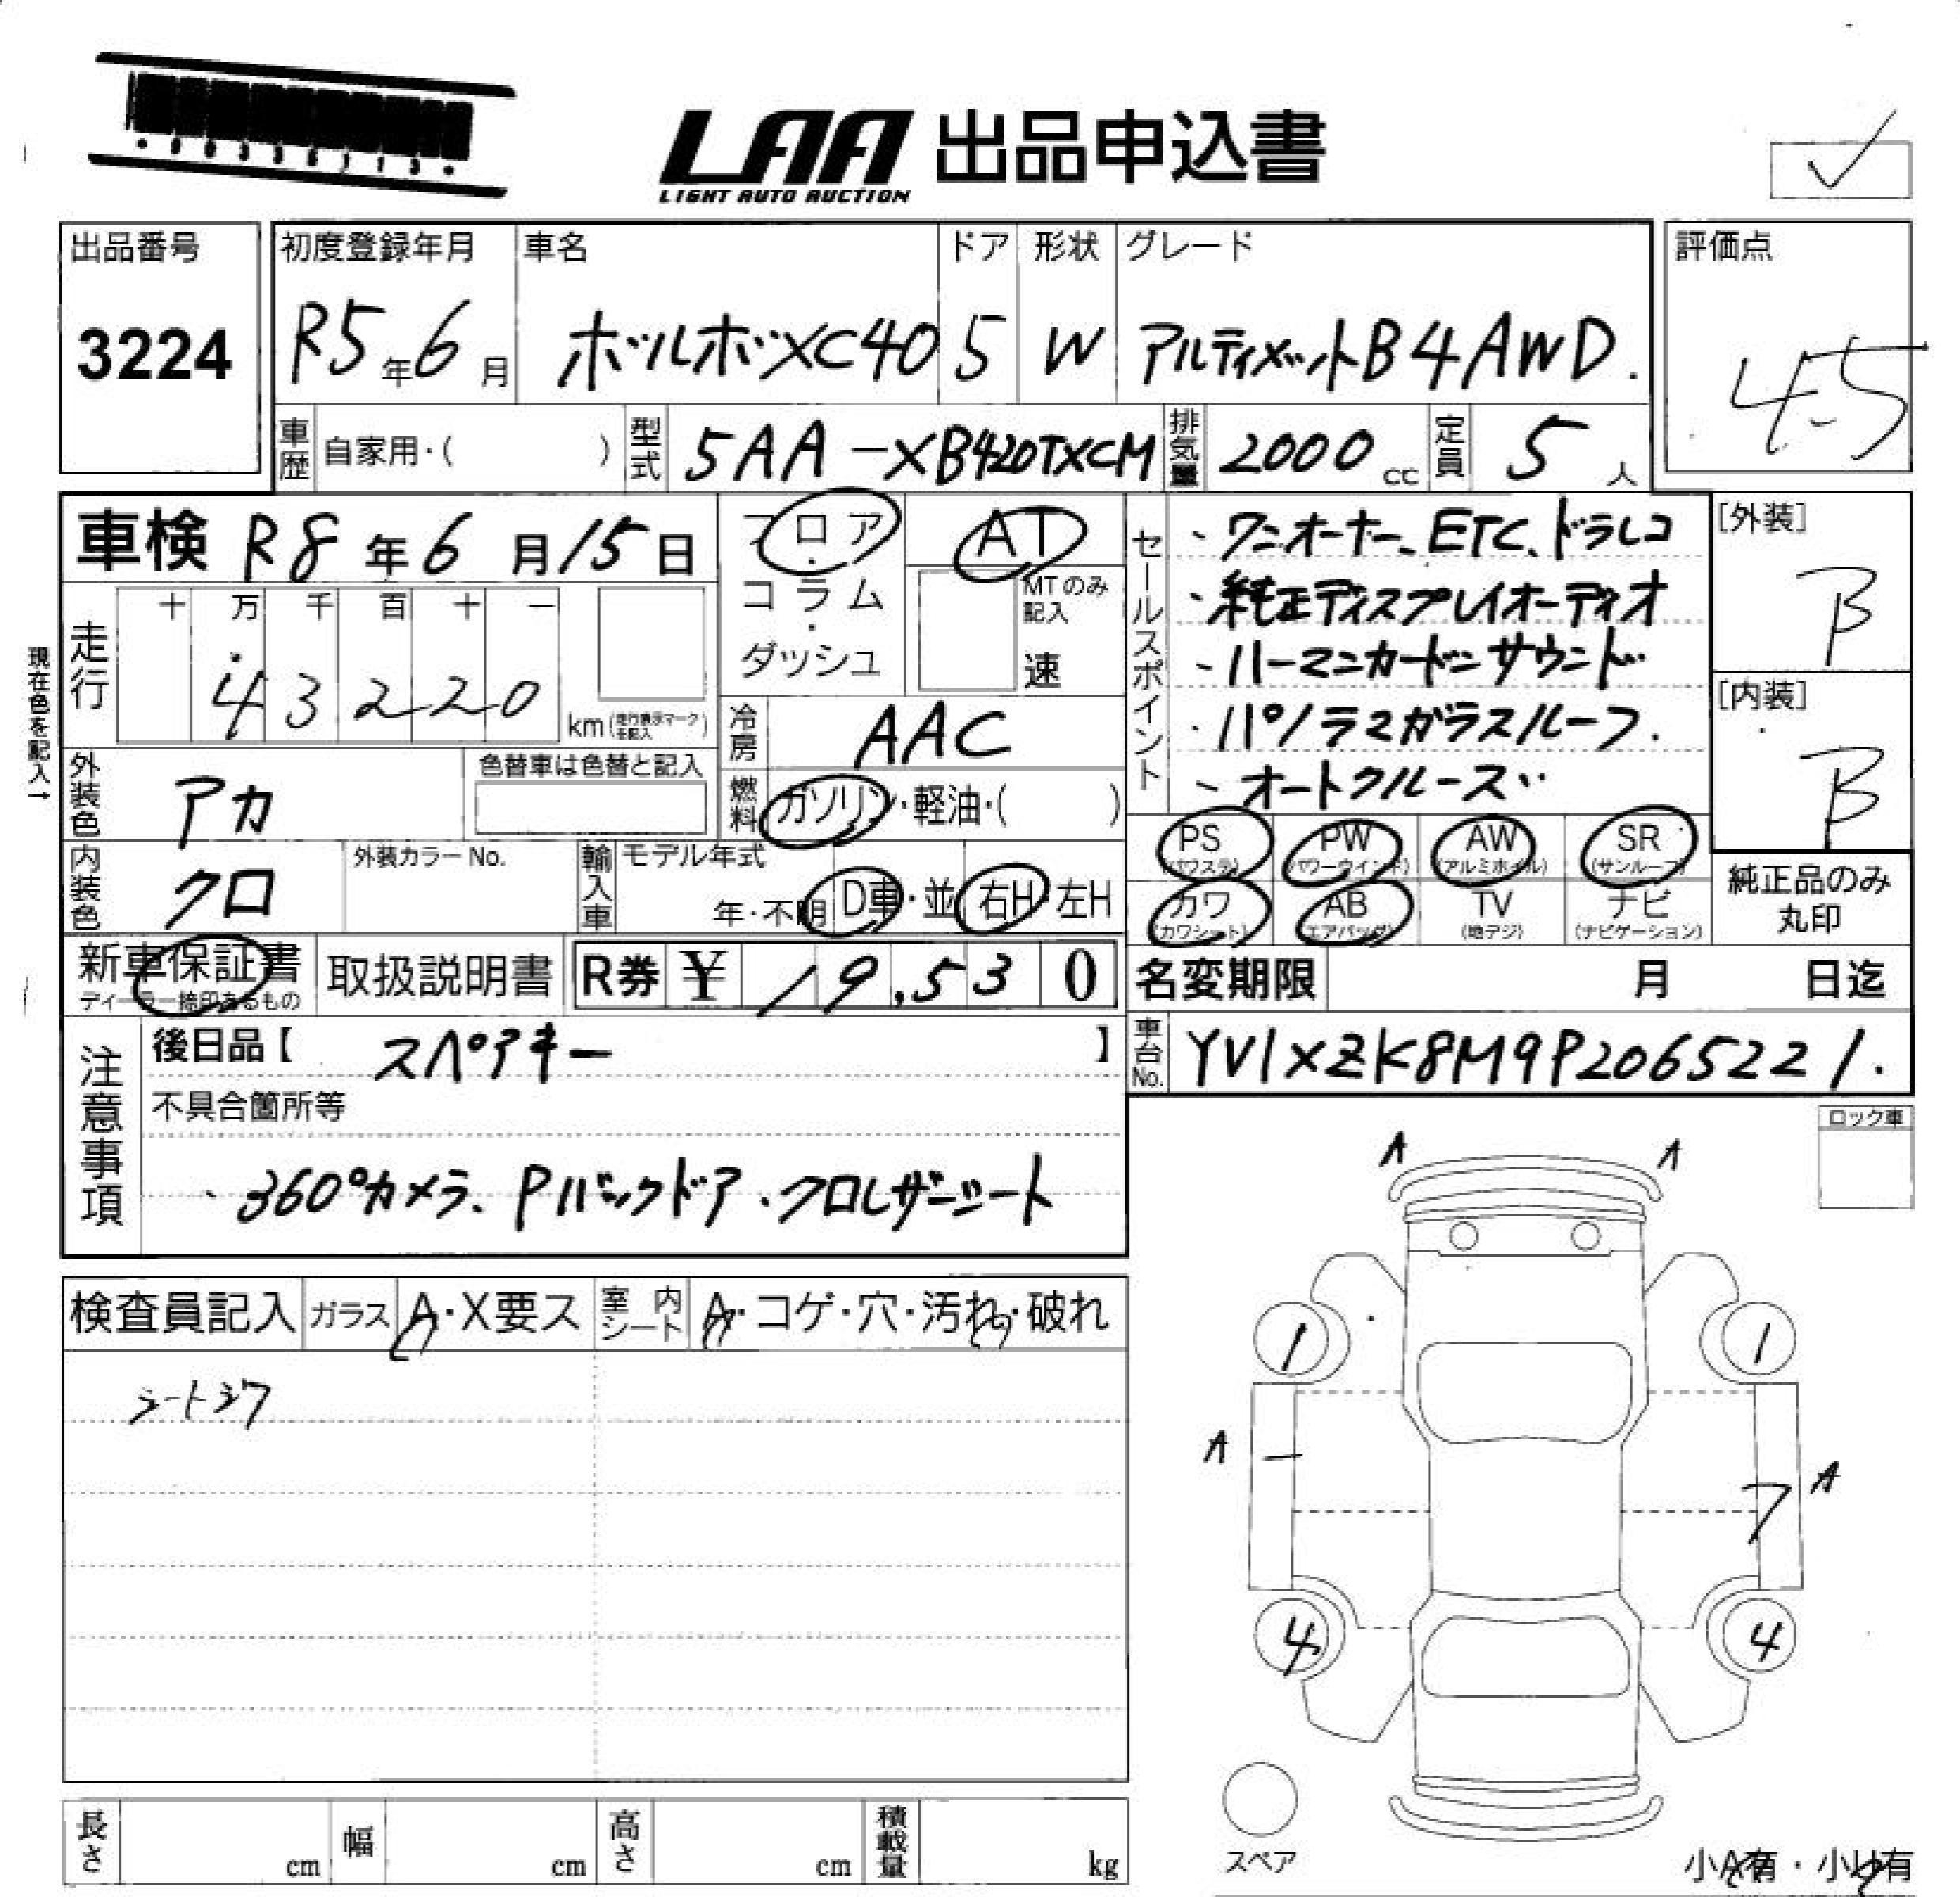 LAA 出品申込書
LIGHT AUTO AUCTION
出品番号
3224
初度登録年月
R5年6月
車名
ボルボXC40
ドア
5
形状
W
グレード
アルティメットB4AWD.
評価点
4.5
車歴 自家用・( )
型式 5AA-XB420TXCM
排気量 2000cc
定員 5人
車検 R8年6月15日
フロア・コラム・ダッシュ
AT
MTのみ記入
速
現在色を記入→
走行
十 万 千 百 十 一
4 3 2 2 0
km(走行表示マークを記入)
冷房 AAC
燃料 ガソリン・軽油・( )
外装色 アカ
色替車は色替と記入
内装色 クロ
外装カラーNo.
輸入車
モデル年式
年・不明
D車・並
右H・左H
セールスポイント
・ワンオーナー、ETC、ドラレコ
・純正ディスプレイオーディオ
・ハーマンカードンサウンド
・パノラマガラスルーフ.
・オートクルーズ
[外装]
B
[内装]
B
PS(パワステ) PW(パワーウインド) AW(アルミホイル) SR(サンルーフ)
カワ(カワシート) AB(エアバッグ) TV(地デジ) ナビ(ナビゲーション)
純正品のみ
丸印
新車保証書
ディーラー捺印あるもの
取扱説明書
R券 ¥ 19,530
名変期限 月 日迄
車台No. YV1XZK8M9P2065221.
注意事項
後日品【 スペアキー 】
不具合箇所等
・360°カメラ、Pバックドア、クロレザーシート
ロック車
検査員記入
ガラス A・X要ス
室内シート A・コゲ・穴・汚れ・破れ
シートシワ
A A
1 1
A A
7
4 4
スペア
小A有・小U有
長さ cm
幅 cm
高さ cm
積載量 kg